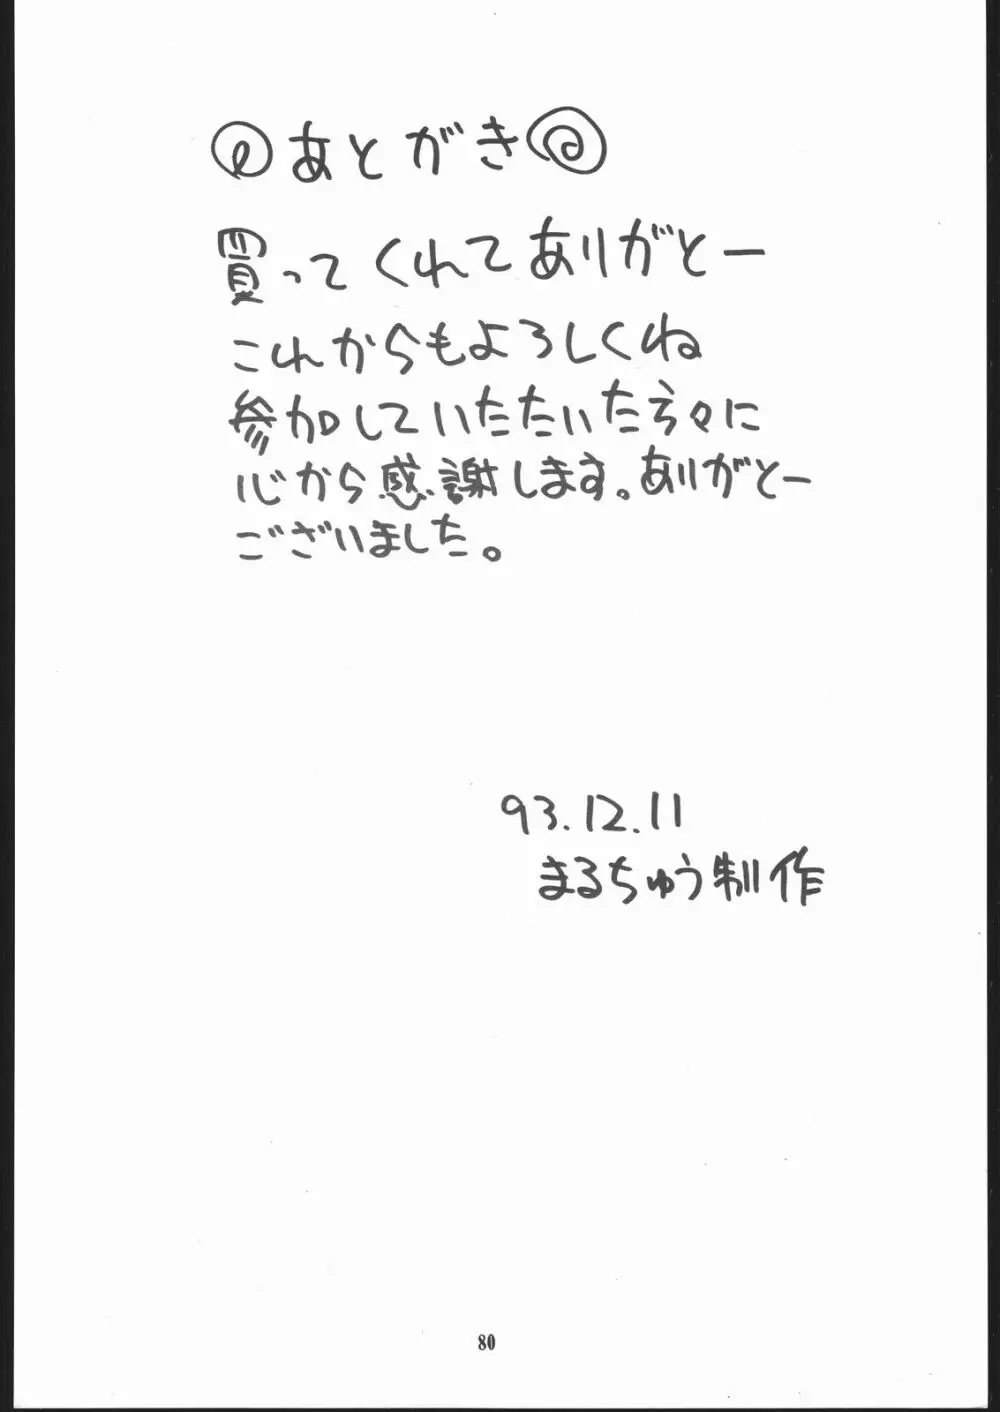 あとがき
買ってくれてありがとー
これからもよろしくね
参加していたたいた方々に
心から感謝します。ありがとー
ございました。
93.12.11
まるちゅう制作
80